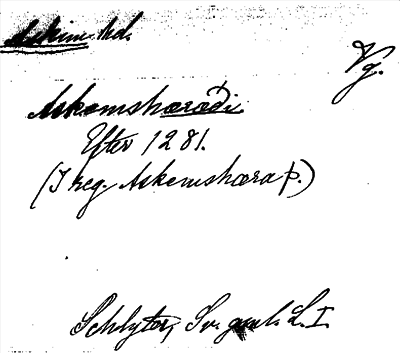 Askims hd.
Vg.
Askemshæraði
Efter 1281.
(I reg. Askemshæraþ.)
Schlyter, Sv. gaml. L. I.